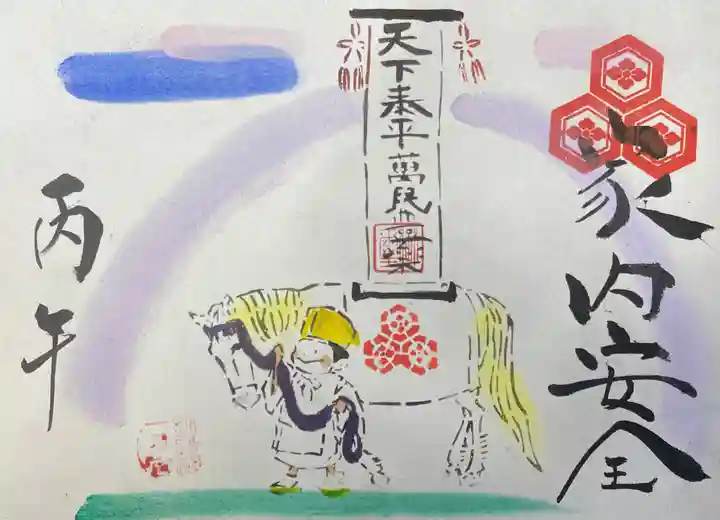 家内安全
天下泰平萬民世樂
丙午